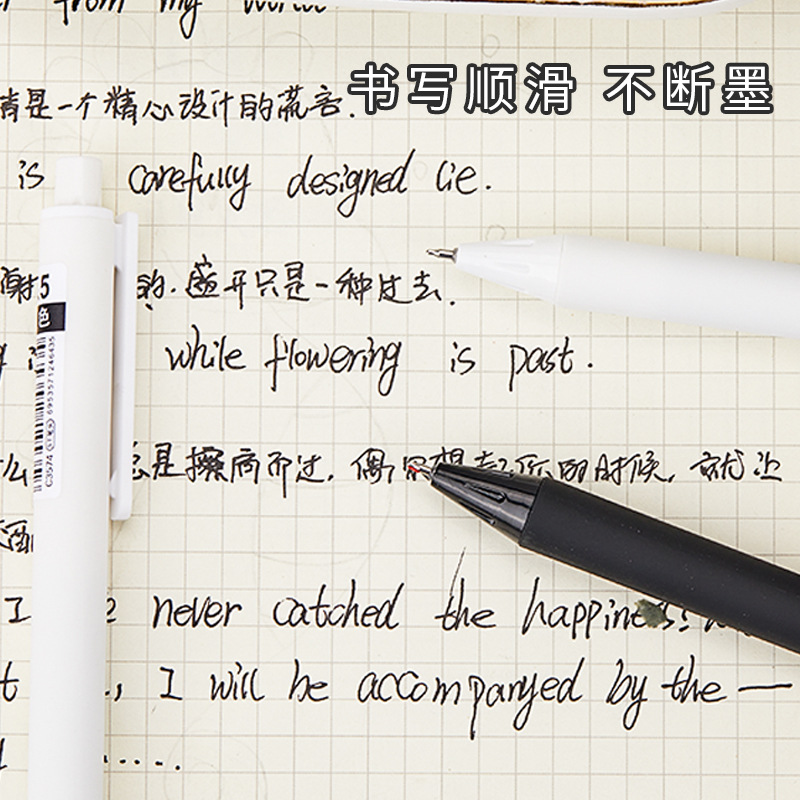 from my world
书写顺滑 不断墨
情是一个精心设计的谎言.
is carefully designed lie.
谢的.盛开只是一种过去.
while flowering is past.
5
色
6953571246435
C3574
总是擦肩而过,偶尔想起你的时候,就让
I never catched the happiness
t , I will be accompanyed by the —
......